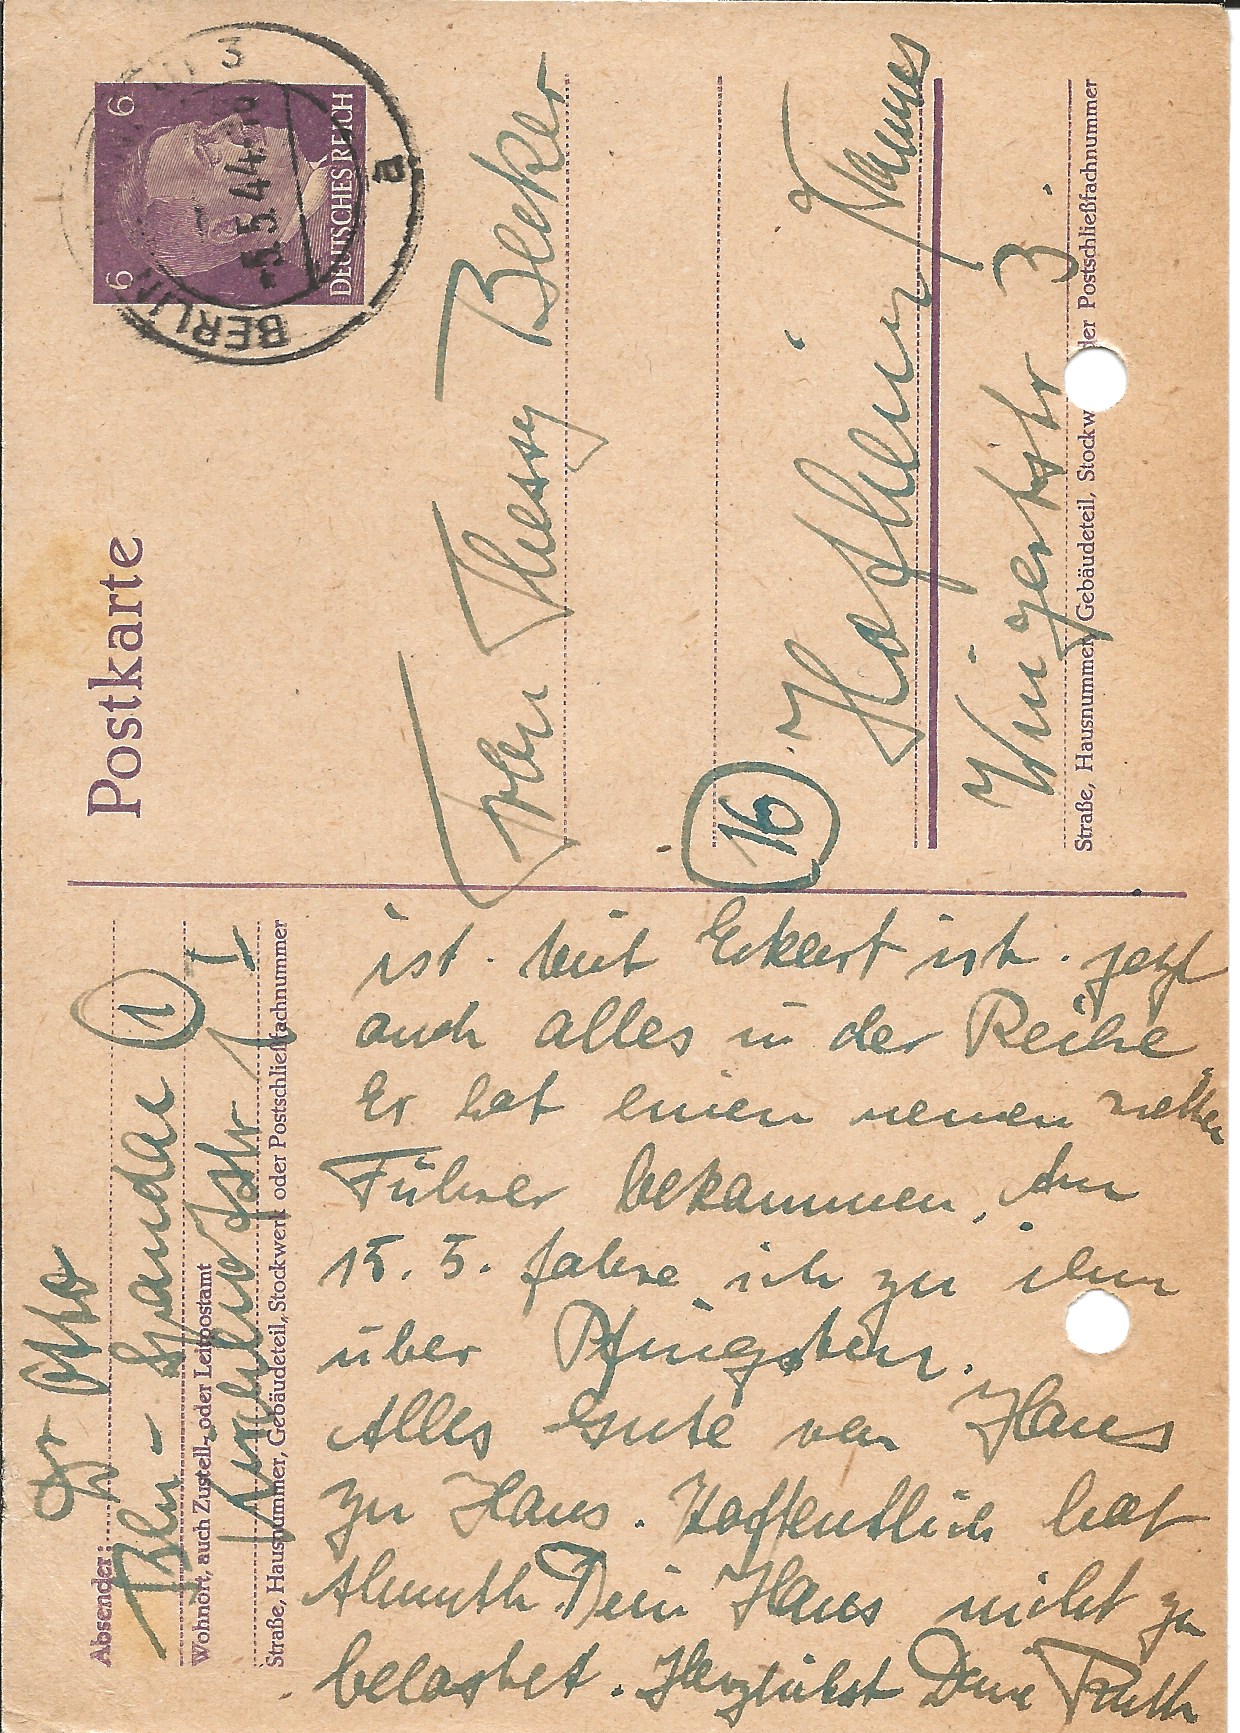 Postkarte
6 6
DEUTSCHES REICH
BERLIN 3
-5.5.44
a
Absender:
Otto
Bln-Spandau 1
Wohnort, auch Zustell- oder Leitpostamt
Straße, Hausnummer, Gebäudeteil, Stockwerk oder Postschließfachnummer
Frau Thessy Becker
16
Hofheim / Taunus
Wingertstr 3.
Straße, Hausnummer, Gebäudeteil, Stockwerk oder Postschließfachnummer
ist. Mit Eckart ist. jetzt
auch alles in der Reihe
Er hat einen neuen netten
Führer bekommen. Am
15. 5. fahre ich zu ihm
über Pfingsten.
Alles Gute von Haus
zu Haus. Hoffentlich hat
Almuth Dein Haus nicht zu
belastet. Herzlichst Deine Ruth